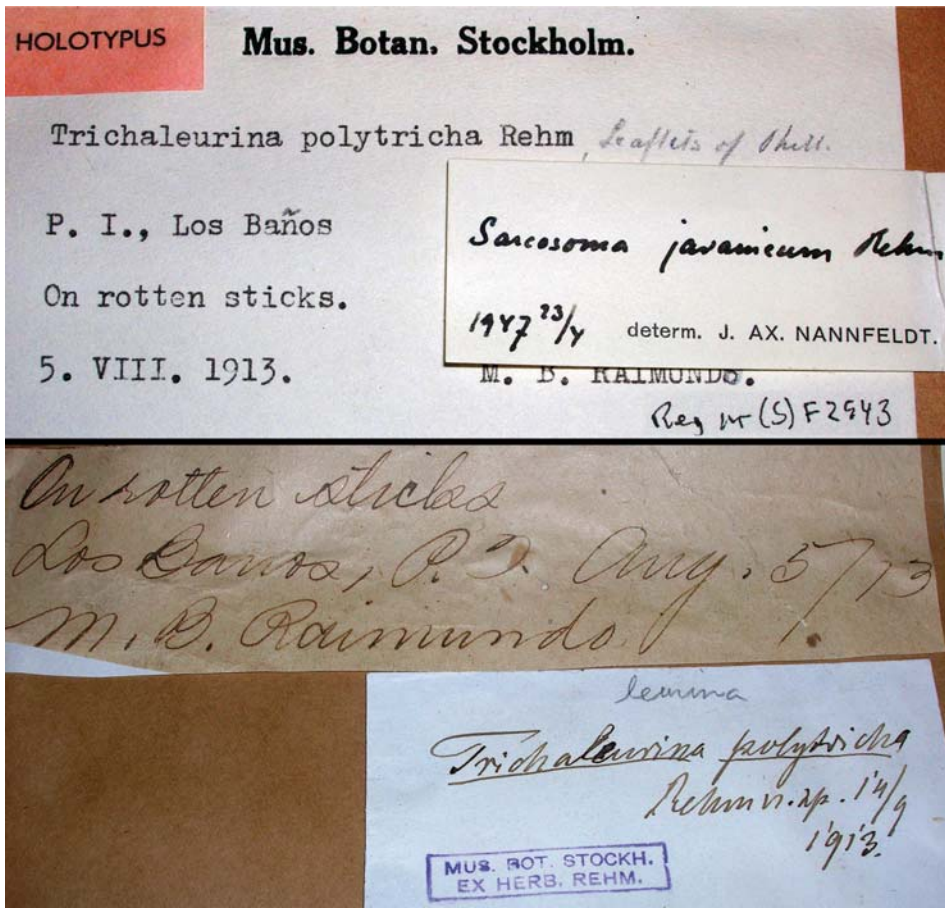 HOLOTYPUS
Mus. Botan. Stockholm.
Trichaleurina polytricha Rehm, Leaflets of Phil.
P. I., Los Baños
On rotten sticks.
5. VIII. 1913.
M. B. RAIMUNDO.
Sarcosoma javanicum Rehm
1947 23/4 determ. J. AX. NANNFELDT.
Reg nr (S) F2543
On rotten sticks
Los Banos, P. I. Aug. 5/13
M. B. Raimundo
leurina
Trichaleurina polytricha
Rehm n. sp. 14/9
1913.
MUS. BOT. STOCKH.
EX HERB. REHM.